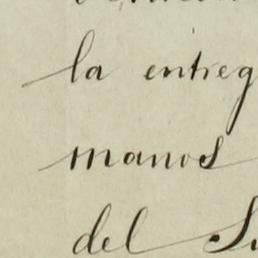 la entreg
manos
del Su